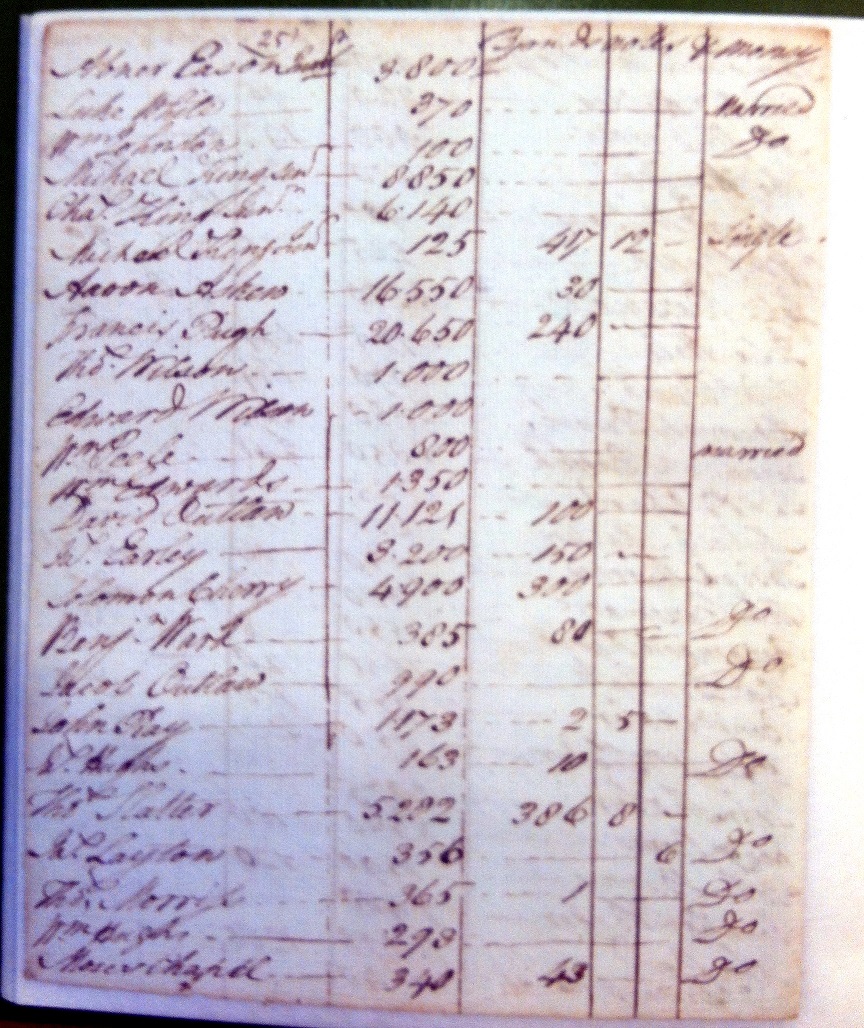 25
Bonds notes & money
Abner Eason 3.800
Luke White 370 Married
Wm Johnston 100 Do
Michael King Senr 8850
Chas. King Senr. 6.140
Michael King Junr 125 47 12 - Single
Aaron Askew 16550 30
Francis Pugh 20.650 240
Thos. Wilson 1.000
Edward Wilson 1.000
Wm 800 married
Wm Edwards 1.350
David Outlaw 11.121 100
Earley 3.200 150
Solomon Cherry 4.900 300
Benjn Ward 385 80 Do
Jacob Outlaw 990 Do
John Ray 1173 2 5
Hughs 163 10 Do
Thos. Slatter 5.282 386 8 -
Layton 356 6 Do
Thos. Morris 365 1 Do
Wm Hughs 293 Do
Moses Chapel 348 43 Do